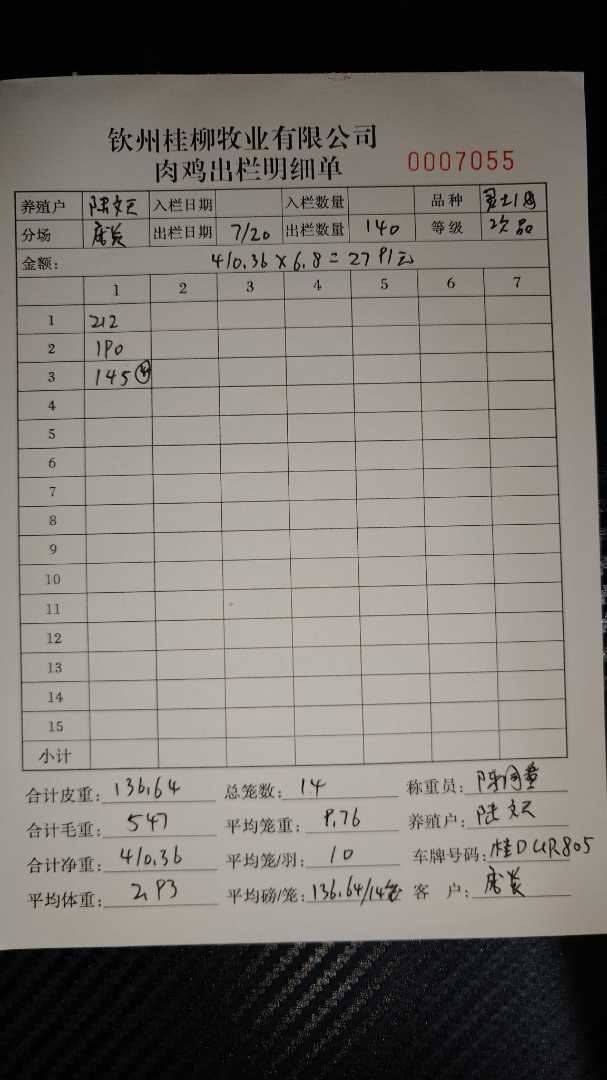 钦州桂柳牧业有限公司
肉鸡出栏明细单 0007055
养殖户 陆文天 入栏日期 入栏数量 品种
分场 出栏日期 7/20 出栏数量 140 等级 次品
金额: 410.36 × 6.8 = 2791元
1 2 3 4 5 6 7
1 212
2 190
3 145 ④
4
5
6
7
8
9
10
11
12
13
14
15
小计
合计皮重: 136.64 总笼数: 14 称重员:
合计毛重: 547 平均笼重: 9.76 养殖户: 陆文天
合计净重: 410.36 平均笼/羽: 10 车牌号码: 桂DUR805
平均体重: 2.93 平均磅/笼: 136.64/14笼 客 户: